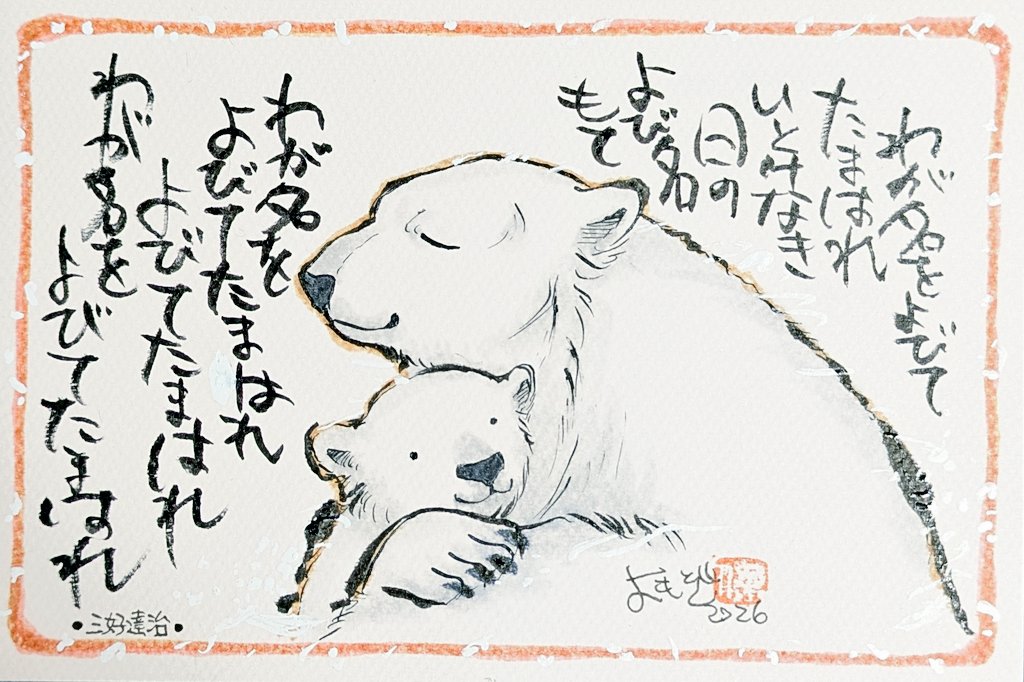 わが名をよびて
たまはれ
いとけなき
日の
よび名
もて
わが名を
よびてたまはれ
よびてたまはれ
わが名を
よびてたまはれ
•三好達治•
2026